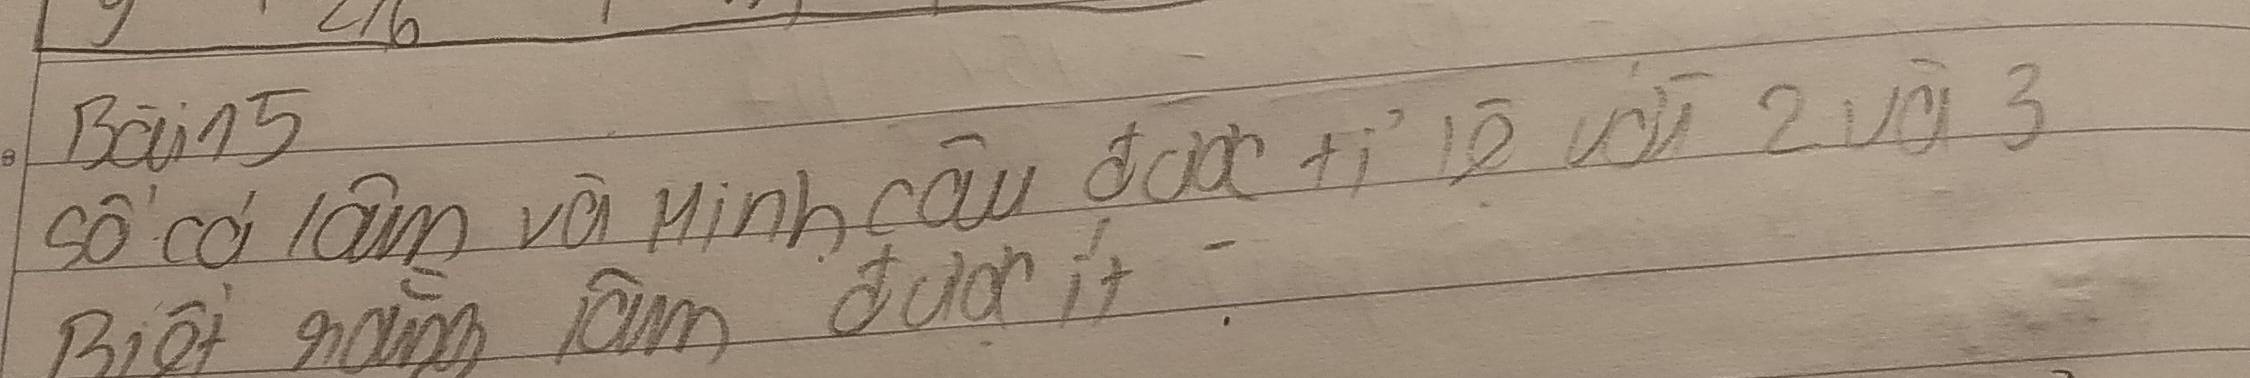 Bài 5
số cá lâm và Minh câu được tỉ lệ với 2 và 3
Biết rằng lâm được ít